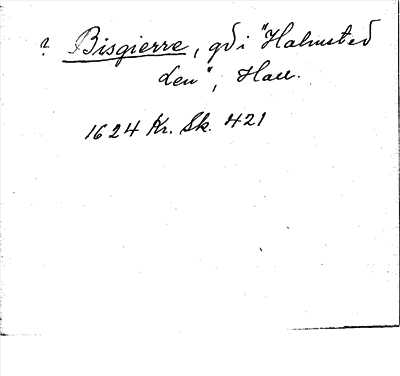 ? Bisgierre, gd i "Halmsted
Len", Hall.
1624 Kr. Sk. 421